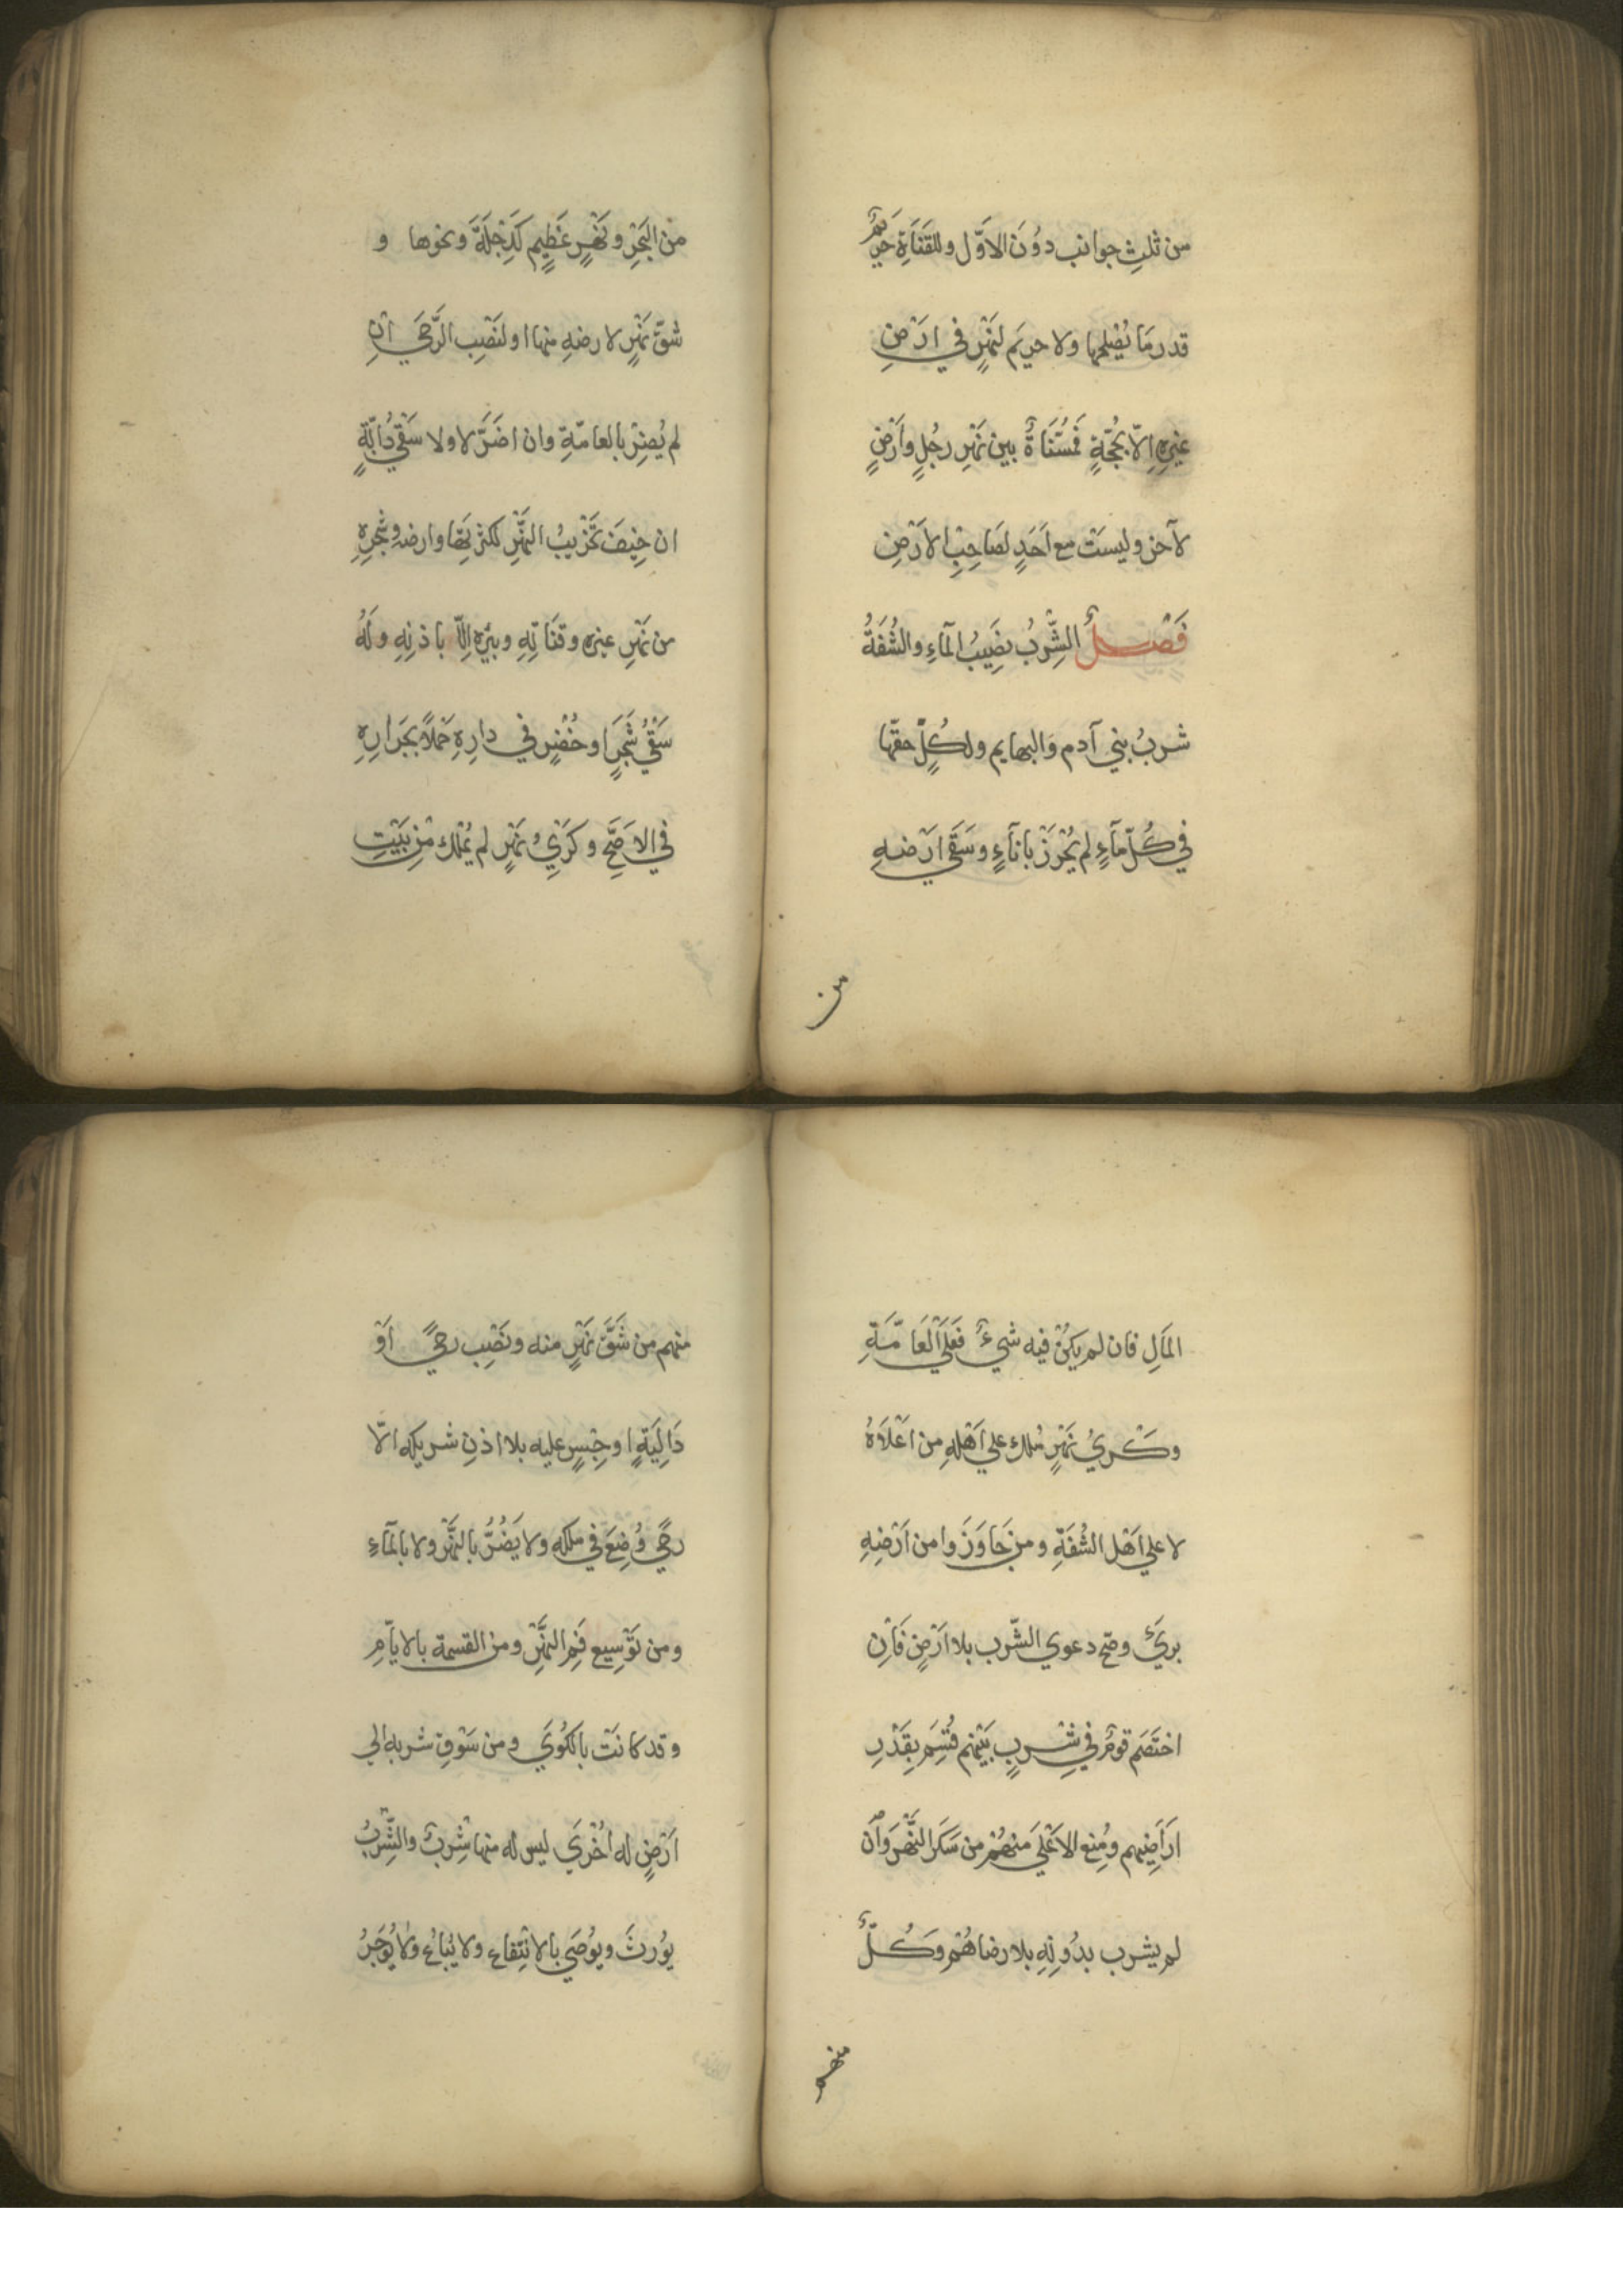 من ثلث جوانب دُوْنَ الاَوّل وللقَنَاةِ حَرِيْمٌ
قدر مَا يُصْلِحُها ولا حريَم لنَهْرٍ في ارْضِ
غيرِهِ اِلاّ بحُجّةٍ فمُسَنَاةٌ بين نَهْرِ رجُلٍ واَرْضٍ
لآخر وليسَتْ مع اَحَدٍ لصَاحِبِ الاَرْضِ
فَصْــلٌ الشِّرْبُ نصَِيْبُ المآءِ والشُفَةُ
شربُ بني آدم وَالبهايم ولكُلٍّ حقّها
في كُلّ مآءٍ لم يُحْرَزْ بانآءٍ وسَقَي ارْضهِ
من
من البَحْرِ ونَهْرٍ عَظِيمٍ كَدِجْلَةَ ونحوها و
شقّ نَهْرٍ لارضهِ منها او لنَصْبِ الرَّحَي اِنْ
لم يُضِرْ بالعامّةِ وان اضَرَّ لا ولا سَقْي دَابّةٍ
ان خِيْفَ تَخْرِيْبُ النَهْرِ لكثرتِهَا وارضهِ وشَجرِهِ
من نَهْرِ غيره وقنَاتِهِ وبئرِهِ اِلاّ باذنِهِ ولَهُ
سَقْيُ شَجَرٍ او خُضَرٍ في دارِهِ حَمْلاً بجَرارِهِ
في الاَصَحِّ وكَرْيُ نَهْرٍ لم يُمْلك مْن بَيْتِ
المَالِ فان لم يكنْ فيه شيءٌ فَعَلَي الْعَامّةِ
وكــريُ نَهْرٍ مُلك علي اَهْلِهِ من اعْلاَهُ
لا علي اَهْل الشُفَةِ ومن جَاوَزَوا من اَرْضِهِ
برئَ وصحّ دعوي الشّرب بلا ارْضٍ فَاِن
اختَصَم قومٌ في شِــربٍ بَيْنهم قُسِّمَ بِقَدْرِ
ارَاَضِيهم ومُنِع الاَعْلَي منهُمْ من سَكَر النَّهْرَ واَن
لم يشرب بدُونِهِ بلا رضاهُمْ وكُــلٌّ
منهم
منهم من شَقَّ نَهْرٍ منه ونَصْبِ رحيً اَوْ
دَالِيَةٍ اوجِسْرٍ عليه بلا اذنِ شريكه الاّ
رحيً وُضِعَ في ملكه ولا يَضُرُّ بالنَّهْرِ ولا بالمآءِ
ومن تَوْسِيع فَمِ النَّهْرِ ومن القسمة بالايّامِ
وقد كانَتْ بالكُوَيَ ومن سَوْقِ شربهِ الي
اَرْضٍ له اُخْرَي ليس له منها شِرْبٌ والشِّرْبُ
يُوْرثَ ويوُصَي بالانْتِفاعِ ولا يُباعُ ولا يُوْجَرُ